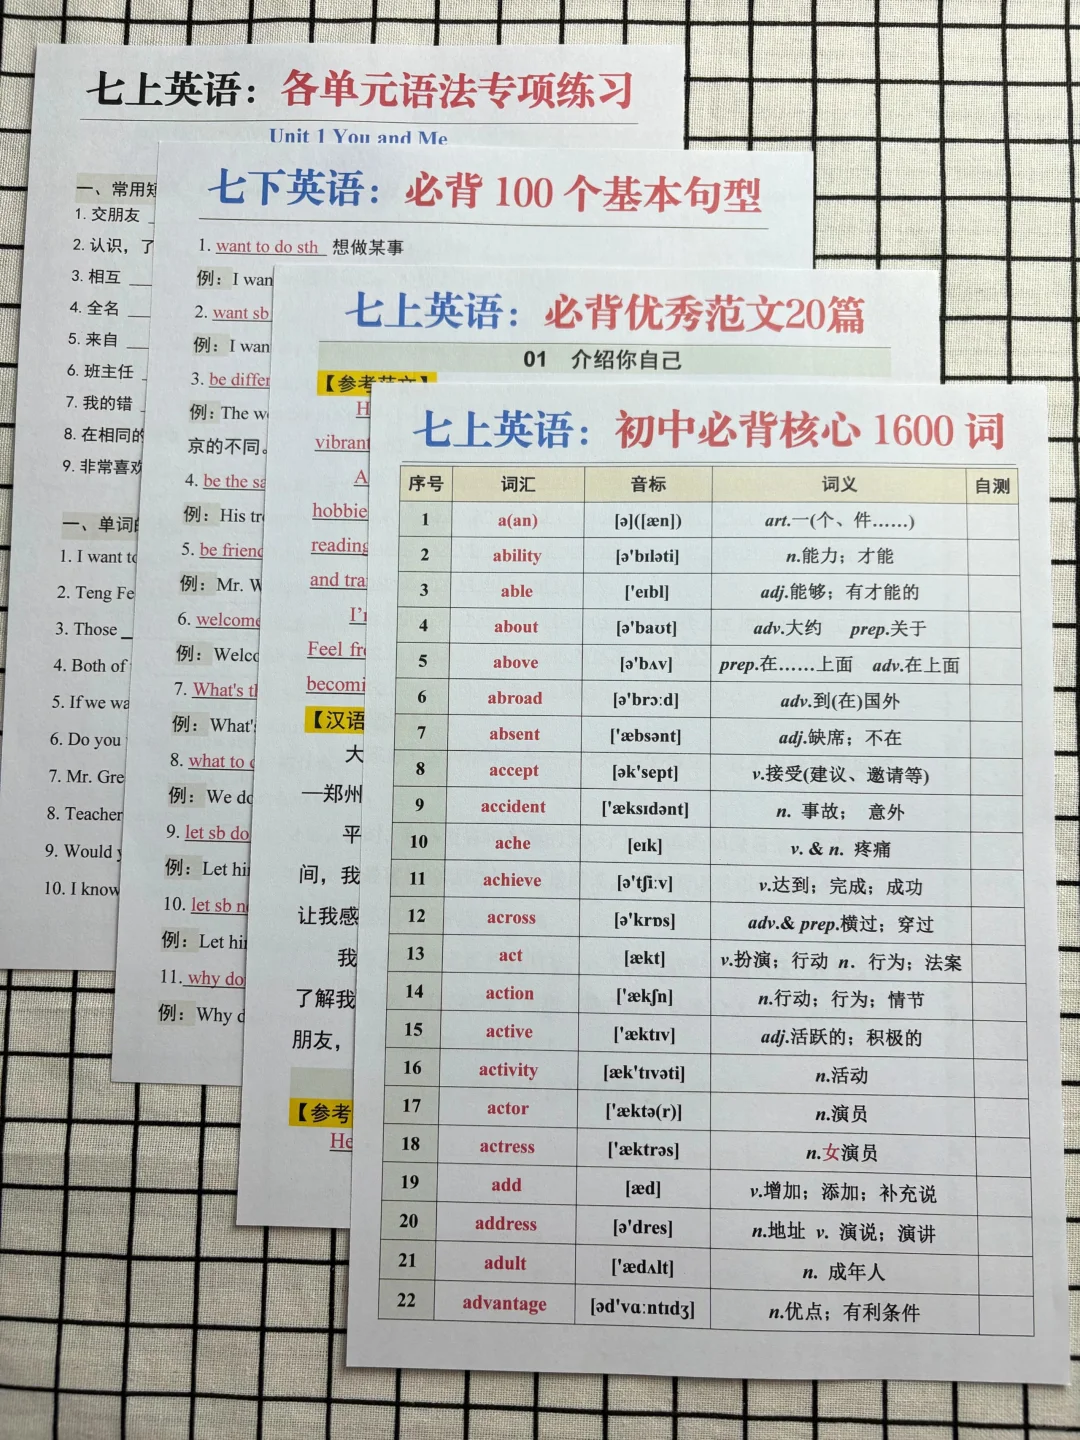 七上英语：各单元语法专项练习
Unit 1 You and Me
一、常用短
1. 交朋友
2. 认识，了
3. 相互
4. 全名
5. 来自
6. 班主任
7. 我的错
8. 在相同的
9. 非常喜欢
一、单词的
1. I want to
2. Teng Fe
3. Those
4. Both of
5. If we wa
6. Do you
7. Mr. Gre
8. Teacher
9. Would y
10. I know
七下英语：必背 100 个基本句型
1. want to do sth 想做某事
例：I wan
2. want sb
例：I wan
3. be differ
例：The we
京的不同。
4. be the sa
例：His tr
5. be friend
例：Mr. W
6. welcome
例：Welco
7. What's th
例：What's
8. what to d
例：We do
9. let sb do
例：Let hi
10. let sb n
例：Let hi
11. why do
例：Why d
七上英语：必背优秀范文20篇
01 介绍你自己
【参考范文】
H
vibrant
A
hobbie
reading
and tra
I'
Feel fr
becomi
【汉语
大
—郑州
平
间，我
让我感
我
了解我
朋友，
【参考
He
七上英语：初中必背核心 1600 词
序号 词汇 音标 词义 自测
1 a(an) [ə]([æn]) art.一(个、件……)
2 ability [ə'bɪləti] n.能力；才能
3 able ['eɪbl] adj.能够；有才能的
4 about [ə'baʊt] adv.大约 prep.关于
5 above [ə'bʌv] prep.在……上面 adv.在上面
6 abroad [ə'brɔːd] adv.到(在)国外
7 absent ['æbsənt] adj.缺席；不在
8 accept [ək'sept] v.接受(建议、邀请等)
9 accident ['æksɪdənt] n. 事故； 意外
10 ache [eɪk] v. & n. 疼痛
11 achieve [ə'tʃiːv] v.达到；完成；成功
12 across [ə'krɒs] adv.& prep.横过；穿过
13 act [ækt] v.扮演；行动 n. 行为；法案
14 action ['ækʃn] n.行动；行为；情节
15 active ['æktɪv] adj.活跃的；积极的
16 activity [æk'tɪvəti] n.活动
17 actor ['æktə(r)] n.演员
18 actress ['æktrəs] n.女演员
19 add [æd] v.增加；添加；补充说
20 address [ə'dres] n.地址 v. 演说；演讲
21 adult ['ædʌlt] n. 成年人
22 advantage [əd'vɑːntɪdʒ] n.优点；有利条件